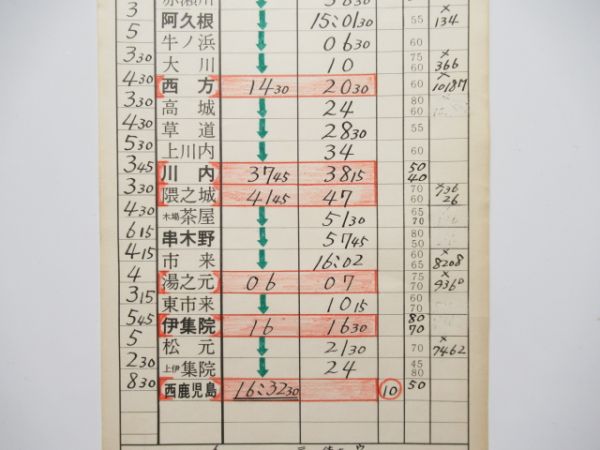 3 阿久根 15:01 30 55 × 134
5 牛ノ浜 06 30 60
3 30 大川 10 75 60 × 366
4 30 西方 14 30 20 30 60 × 10187
3 30 高城 24 80 60
4 30 草道 28 30 55
5 30 上川内 34 60
3 45 川内 37 45 38 15 50 40
3 30 隈之城 41 45 47 70 60 26
4 30 木場茶屋 51 30 65 70
6 15 串木野 57 45 80 50
4 15 市来 16:02 60 65 × 8208
4 湯之元 06 07 70 75 × 9360
3 15 東市来 10 15 60 70
5 45 伊集院 16 16 30 80 70
5 松元 21 30 70 × 7462
2 30 上伊集院 24 45 80
8 30 西鹿児島 16:32 30 10 50